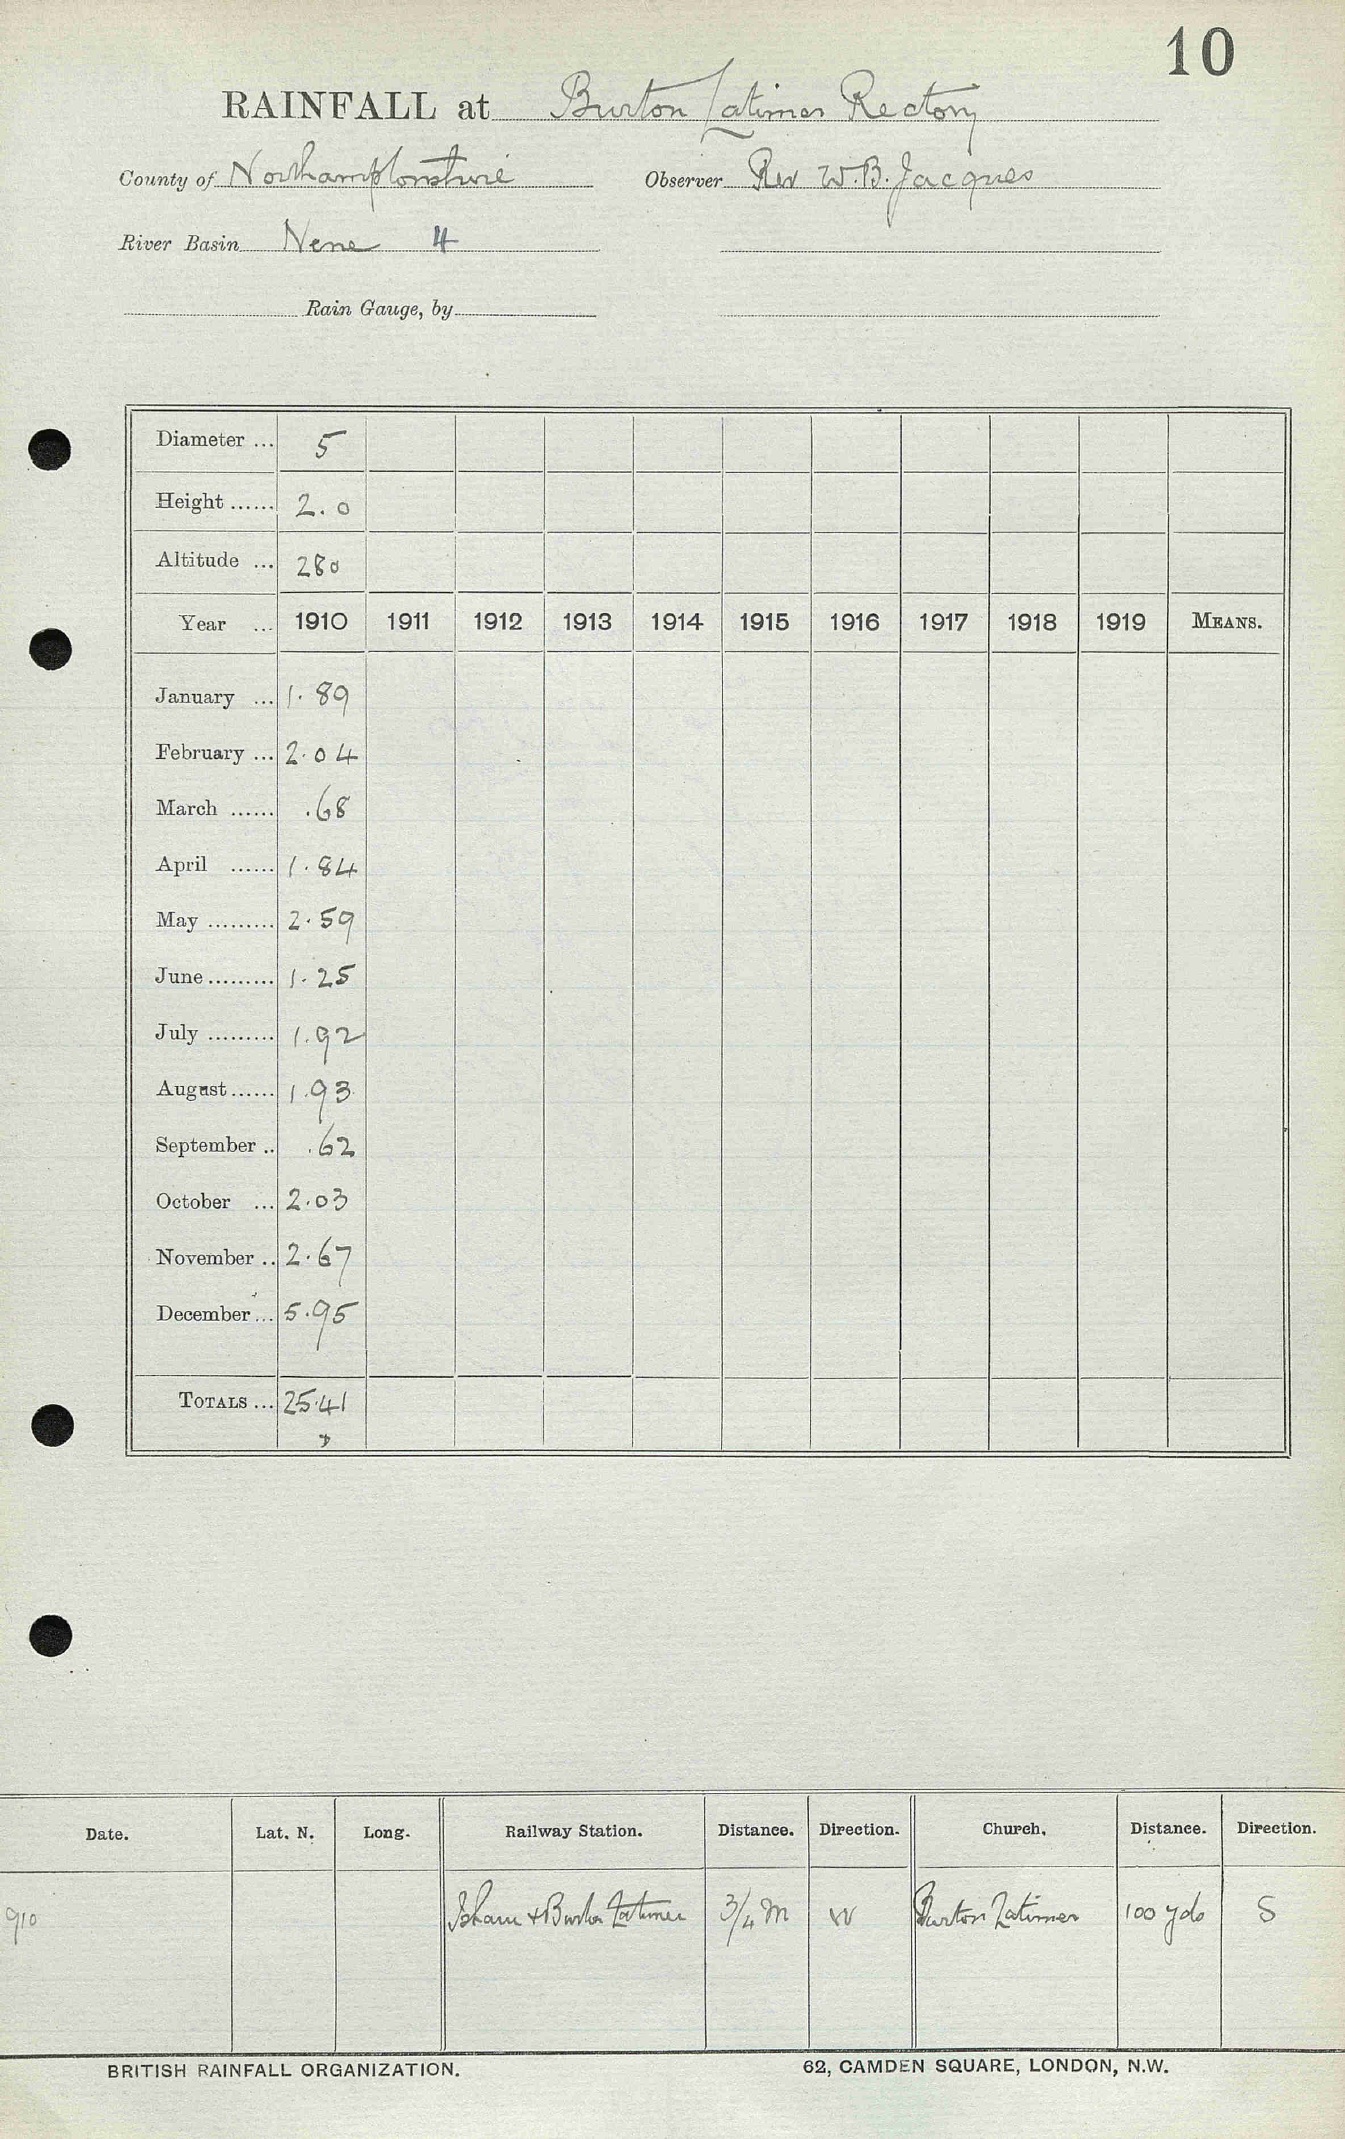 10
RAINFALL at Burton Latimer Rectory
County of Northamptonshire Observer Rev W.B. Jacques
River Basin Nene 4
Rain Gauge, by
Diameter ... 5
Height ...... 2.0
Altitude ... 280
Year ... 1910 1911 1912 1913 1914 1915 1916 1917 1918 1919 MEANS.
January ... 1.89
February ... 2.04
March ...... .68
April ...... 1.84
May ......... 2.59
June ......... 1.25
July ......... 1.92
August ...... 1.93
September .. .62
October ... 2.03
November .. 2.67
December ... 5.95
TOTALS ... 25.41
Date. Lat. N. Long. Railway Station. Distance. Direction. Church. Distance. Direction.
910 Isham & Burton Latimer 3/4 m W Burton Latimer 100 yds S
BRITISH RAINFALL ORGANIZATION. 62, CAMDEN SQUARE, LONDON, N.W.